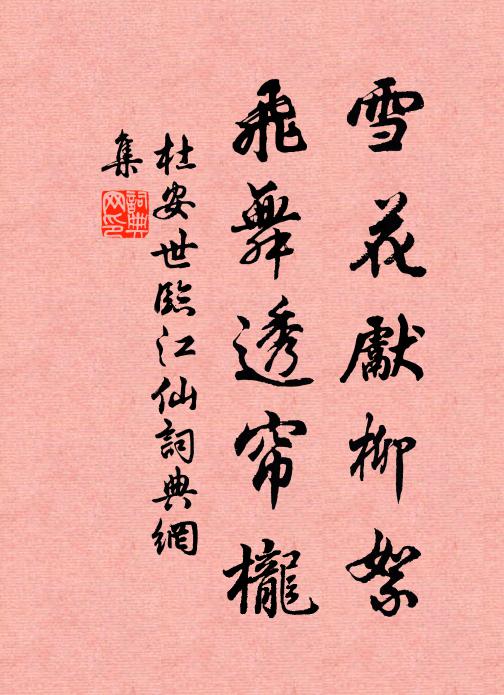 雪花獻柳絮
飛舞透帘櫳
杜安世臨江仙詞典網
集
詞典
网印